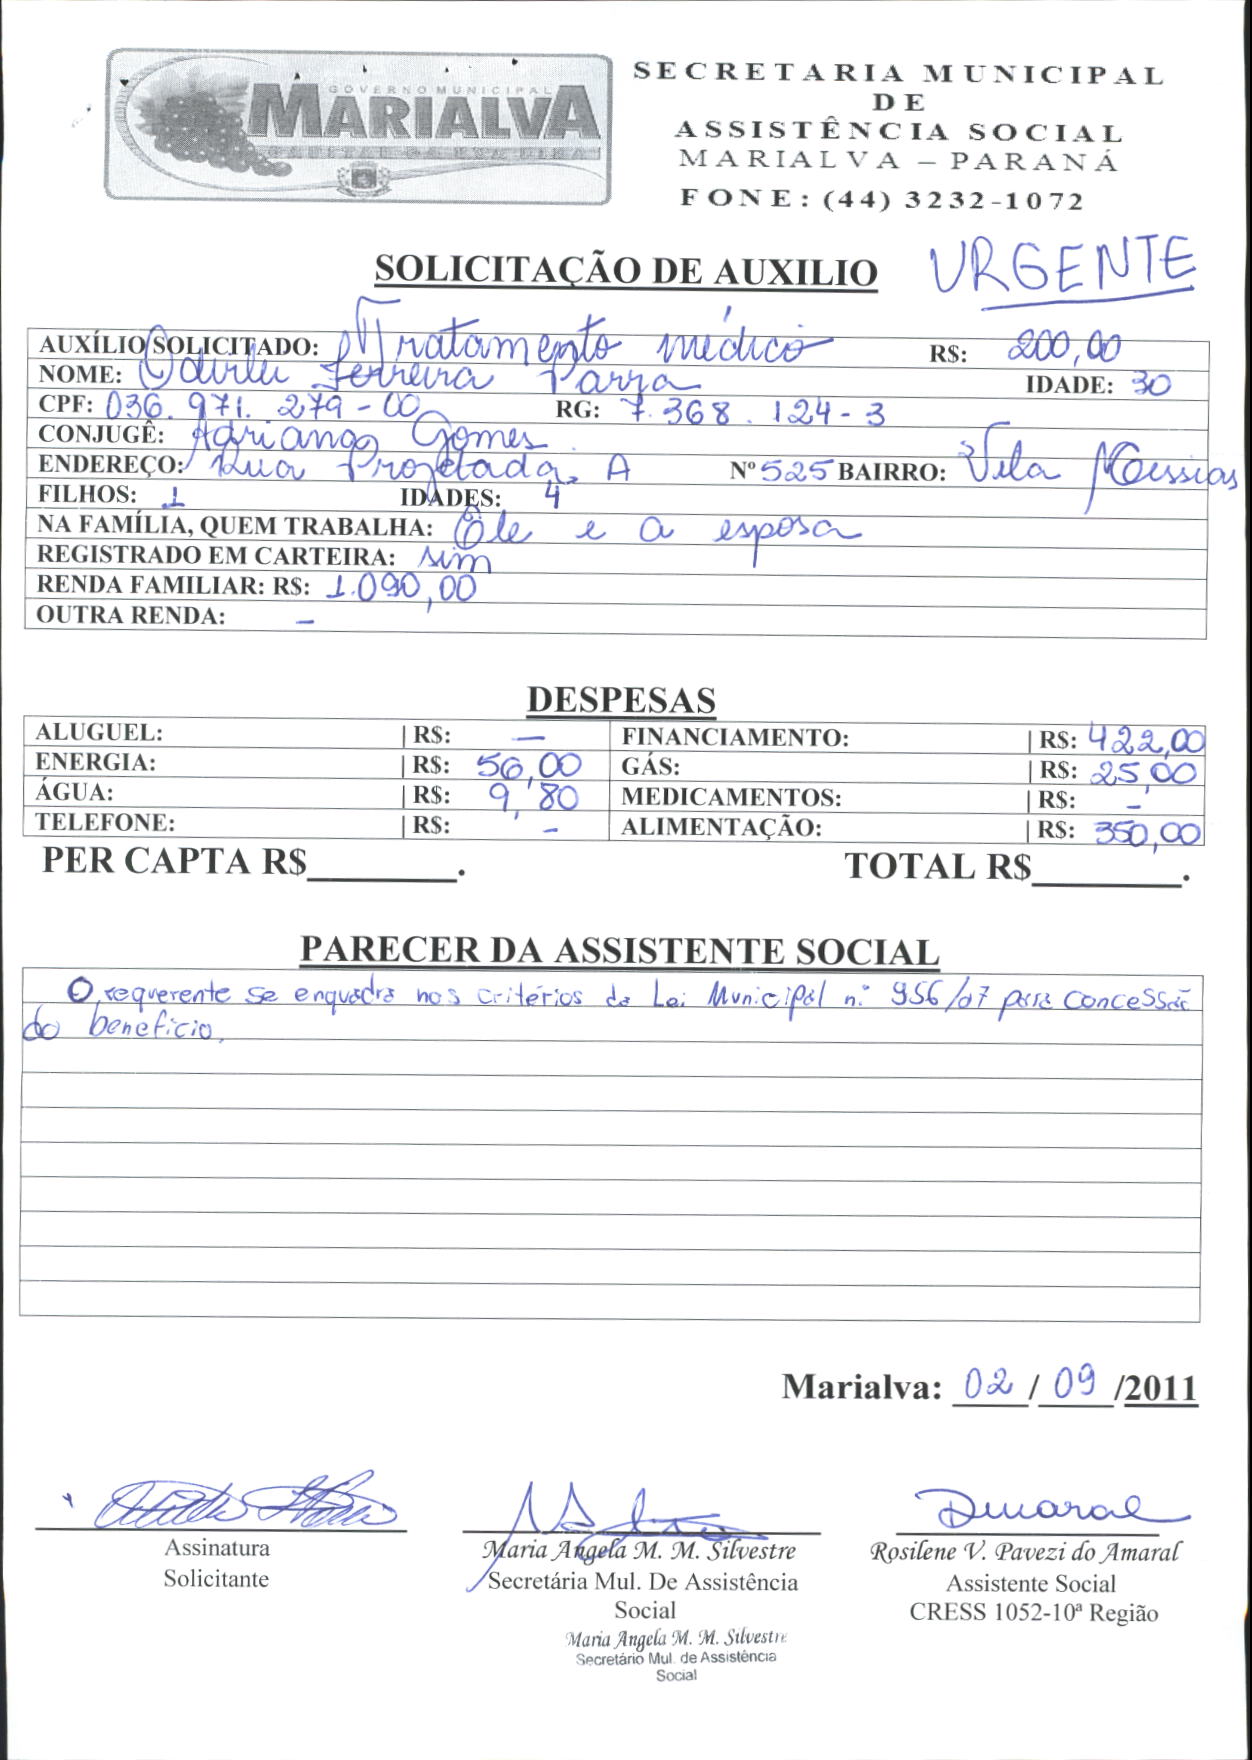 GOVERNO MUNICIPAL
MARIALVA
CAPITAL DA UVA FINA
SECRETARIA MUNICIPAL
DE
ASSISTÊNCIA SOCIAL
MARIALVA – PARANÁ
FONE: (44) 3232-1072
SOLICITAÇÃO DE AUXILIO URGENTE
AUXÍLIO SOLICITADO: Tratamento médico R$: 200,00
NOME: Odirlei Ferreira Parra IDADE: 30
CPF: 036.971.279-00 RG: 7.368.124-3
CONJUGÊ: Adriana Gomes
ENDEREÇO: Rua Projetada, A Nº 525 BAIRRO: Vila Messias
FILHOS: 1 IDADES: 4
NA FAMÍLIA, QUEM TRABALHA: Ele e a esposa
REGISTRADO EM CARTEIRA: sim
RENDA FAMILIAR: R$: 1.090,00
OUTRA RENDA: –
DESPESAS
ALUGUEL: | R$: – FINANCIAMENTO: | R$: 422,00
ENERGIA: | R$: 56,00 GÁS: | R$: 25,00
ÁGUA: | R$: 9,80 MEDICAMENTOS: | R$: –
TELEFONE: | R$: – ALIMENTAÇÃO: | R$: 350,00
PER CAPTA R$________. TOTAL R$________.
PARECER DA ASSISTENTE SOCIAL
O requerente se enquadra nos critérios da Lei Municipal n.º 956/07 para concessão
do benefício.
Marialva: 02 / 09 /2011
Assinatura
Solicitante
Maria Angela M. M. Silvestre
Secretária Mul. De Assistência
Social
Maria Angela M. M. Silvestre
Secretário Mul. de Assistência
Social
Amaral
Rosilene V. Pavezi do Amaral
Assistente Social
CRESS 1052-10ª Região